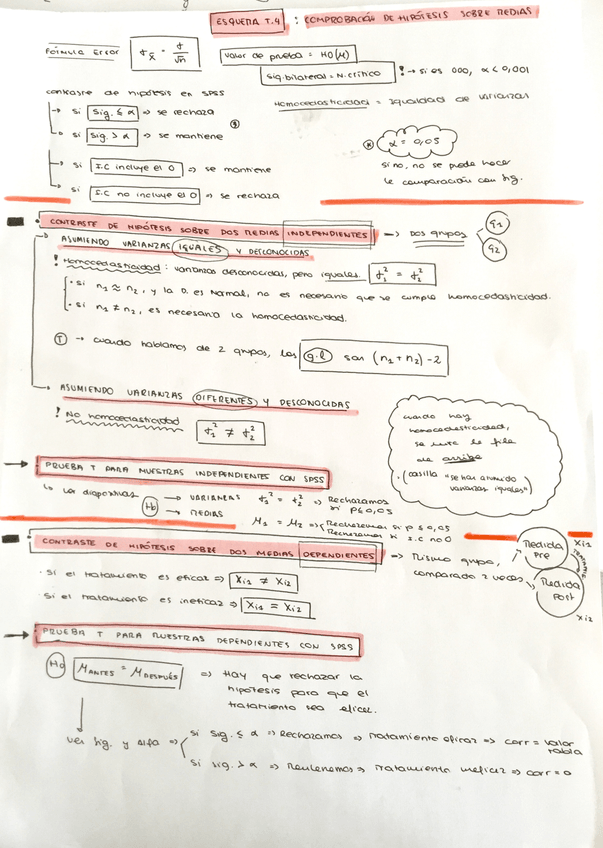 ESQUEMA T.4 : COMPROBACIÓN DE HIPÓTESIS SOBRE MEDIAS
Fórmula Error σx̄ = σ/√n
Valor de prueba = H0 (μ)
Sig. bilateral = N. crítico ! → Si es 000, α < 0,001
Homocedasticidad = Igualdad de varianzas
contraste de hipótesis en SPSS
→ Si Sig. ≤ α ⇒ se rechaza
→ Si Sig. > α ⇒ se mantiene
→ Si I.C incluye el 0 ⇒ se mantiene
→ Si I.C no incluye el 0 ⇒ se rechaza
α = 0,05
si no, no se puede hacer
la comparación con sig.
CONTRASTE DE HIPÓTESIS SOBRE DOS MEDIAS INDEPENDIENTES → DOS grupos G1 G2
ASUMIENDO VARIANZAS IGUALES Y DESCONOCIDAS
! Homocedasticidad : varianzas desconocidas, pero iguales. σ1² = σ2²
· Si n1 ≈ n2, y la D. es Normal, no es necesario que se cumpla homocedasticidad.
· Si n1 ≠ n2, es necesario la homocedasticidad.
T → cuando hablamos de 2 grupos, los g.l son (n1 + n2) - 2
ASUMIENDO VARIANZAS DIFERENTES Y DESCONOCIDAS
! No homocedasticidad
σ1² ≠ σ2²
cuando hay
homocedasticidad,
se mira la fila
de arriba
(casilla "se han asumido
varianzas iguales")
→ PRUEBA T PARA MUESTRAS INDEPENDIENTES CON SPSS
H0 → VARIANZAS σ1² = σ2² ⇒ Rechazamos si p ≤ 0,05
→ MEDIAS μ1 = μ2 ⇒ Rechazamos si p ≤ 0,05
Rechazamos si I.C no 0
CONTRASTE DE HIPÓTESIS SOBRE DOS MEDIAS DEPENDIENTES → Mismo grupo,
comparado 2 veces
Medida Pre Xi1
Medida Post Xi2
· Si el tratamiento es eficaz ⇒ Xi1 ≠ Xi2
· Si el tratamiento es ineficaz ⇒ Xi1 = Xi2
→ PRUEBA T PARA MUESTRAS DEPENDIENTES CON SPSS
H0 μANTES = μDESPUÉS ⇒ Hay que rechazar la
hipótesis para que el
tratamiento sea eficaz.
Ver Sig. y Alfa ⇒ Si Sig. ≤ α ⇒ Rechazamos ⇒ Tratamiento eficaz ⇒ corr = valor tabla
Si sig. > α ⇒ Mantenemos ⇒ Tratamiento ineficaz ⇒ corr = 0